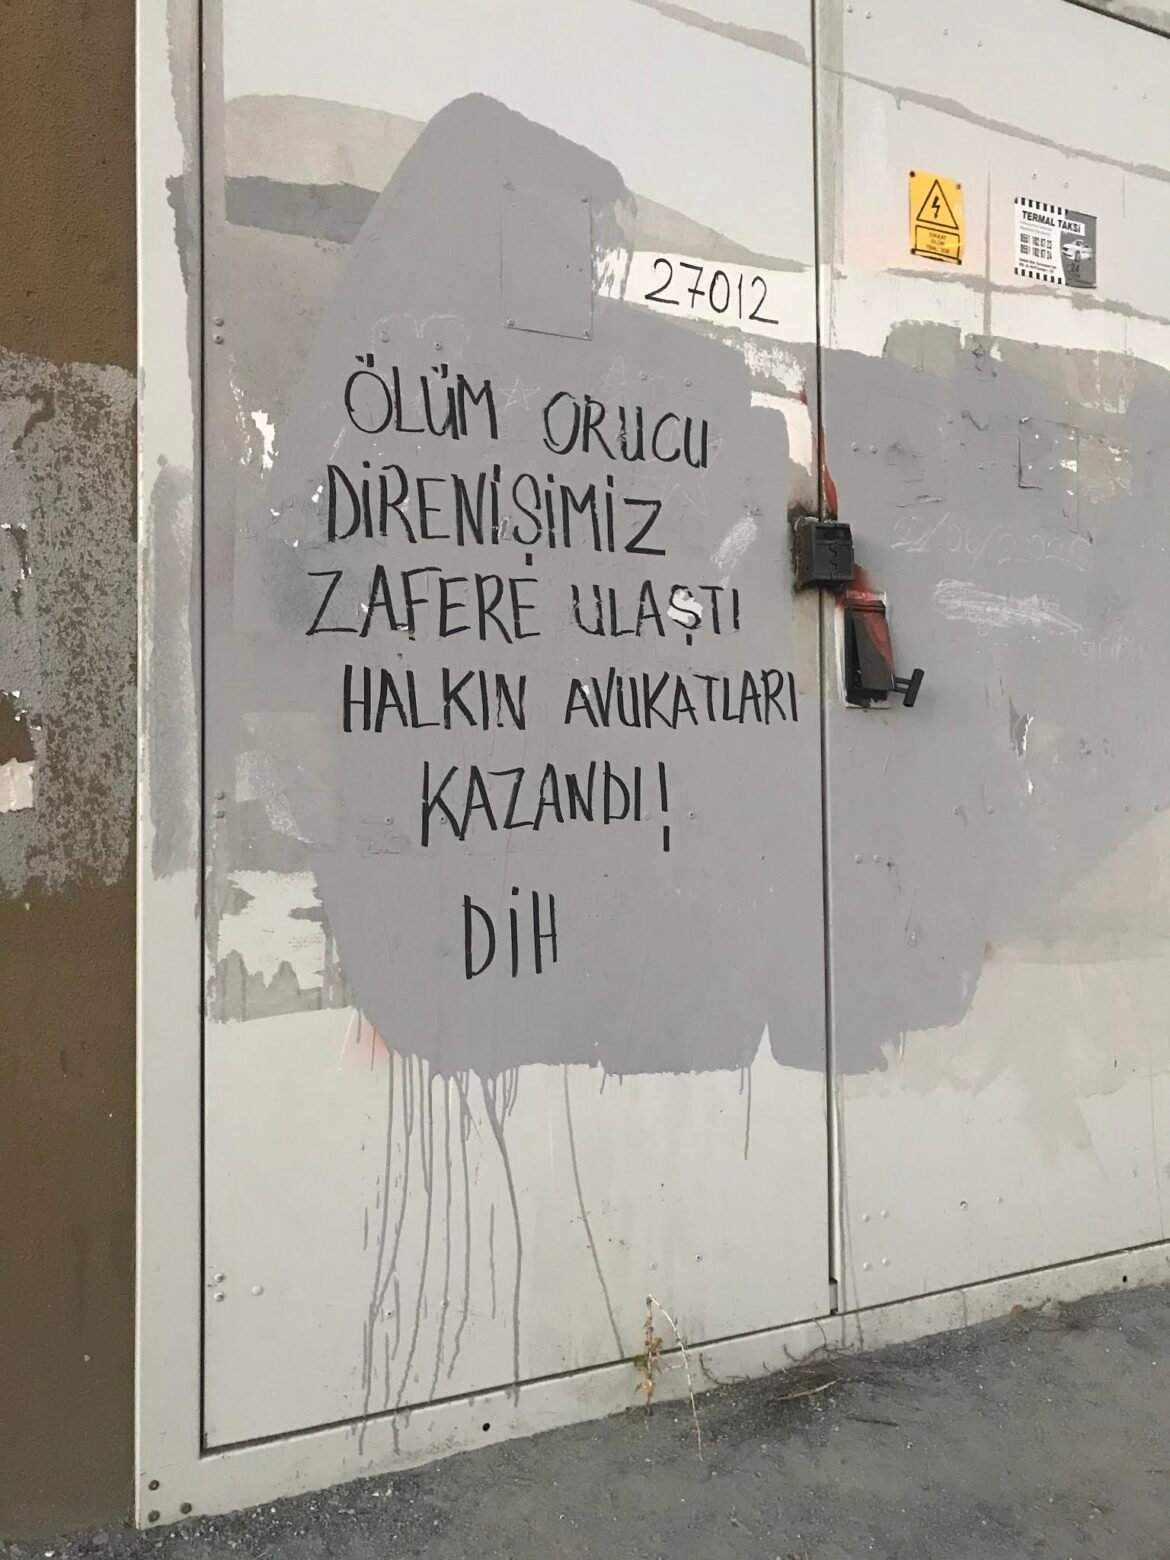 27012
TERMAL TAKSİ
ÖLÜM ORUCU
DİRENİŞİMİZ
ZAFERE ULAŞTI
HALKIN AVUKATLARI
KAZANDI!
DİH